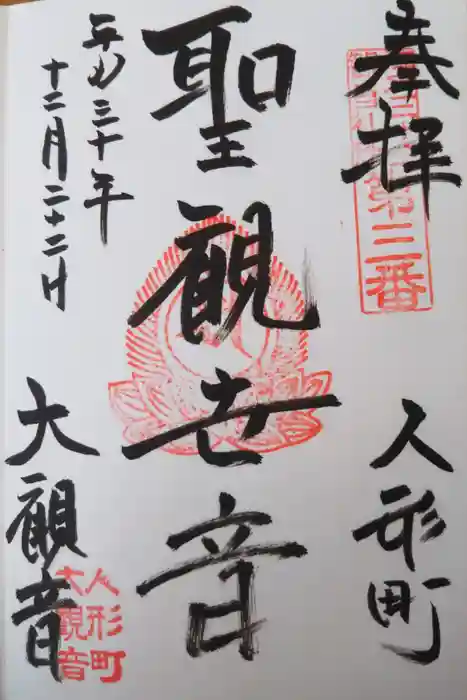 奉拝
第三番
人形町
聖観世音
平成三十年
十二月二十二日
大観音
人形町
大観音